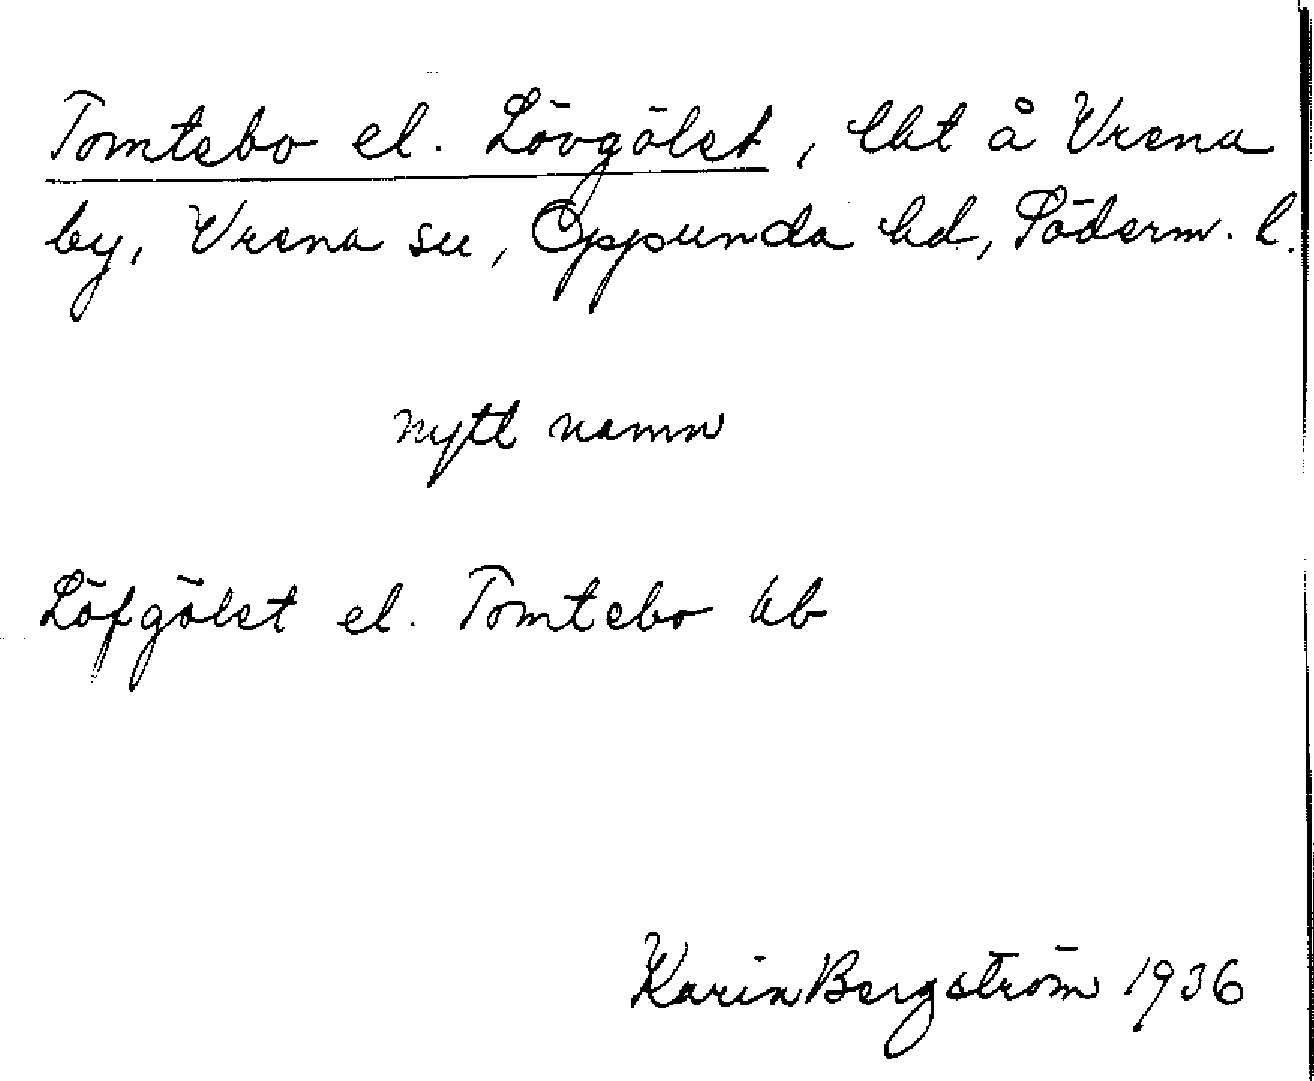 Tomtebo el. Lövgölet, lht å Vrena
by, Vrena sn, Oppunda hd, Söderm. l.
nytt namn
Löfgölet el. Tomtebo Ub
Karin Bergström 1936